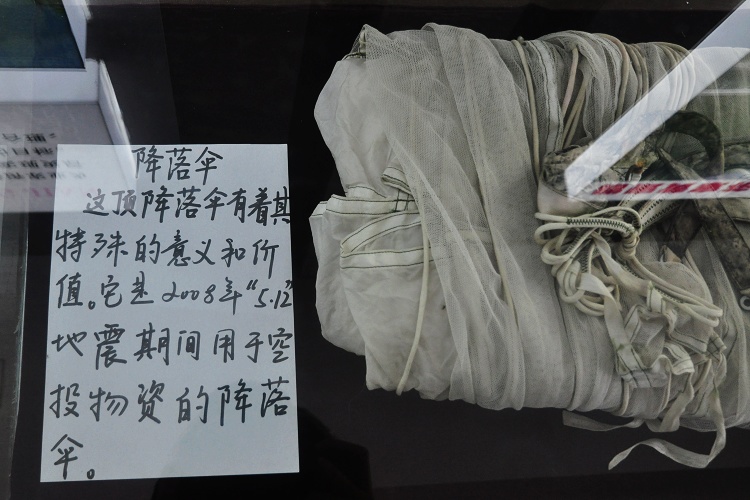 降落伞
这顶降落伞有着其
特殊的意义和价
值。它是2008年“5.12”
地震期间用于空
投物资的降落
伞。